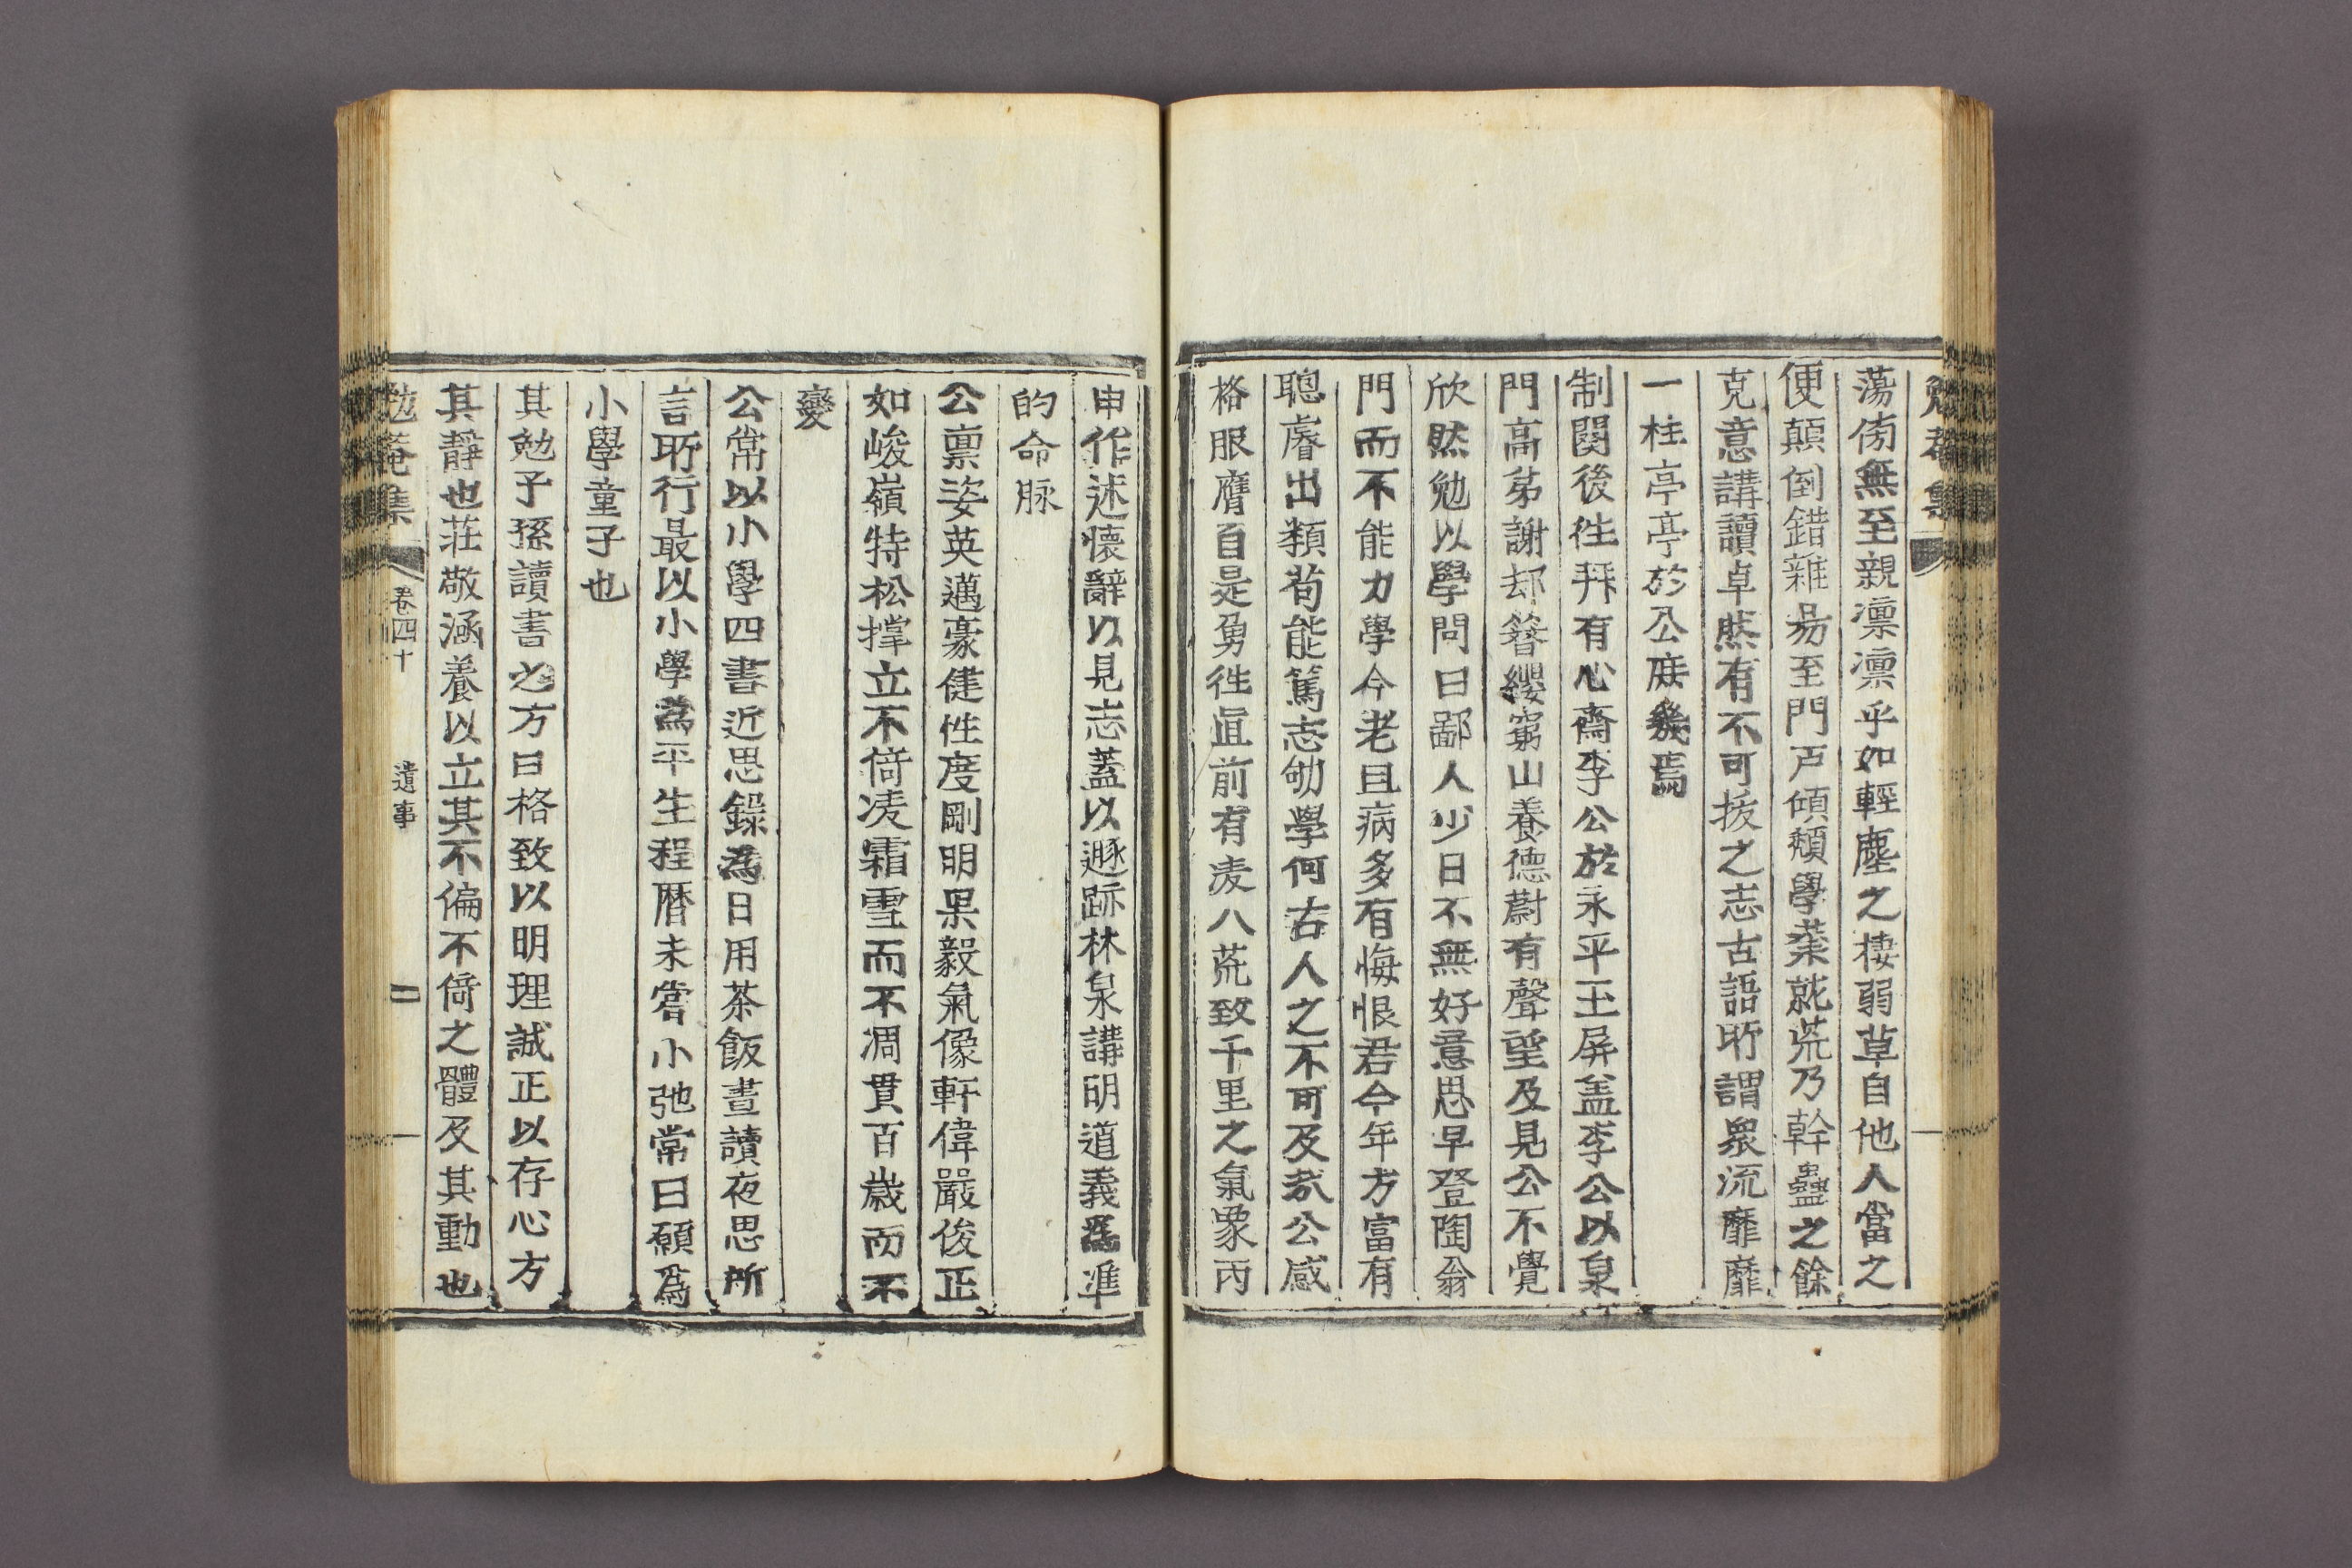 勉菴集
蕩傍無至親凛凛乎如輕塵之棲弱草自他人當之
便顛倒錯雜易至門戶傾頹學業就荒乃幹蠱之餘
克意講讀卓然有不可拔之志古語所謂衆流靡靡
一柱亭亭於公庶幾焉
制闋後徃拜有心齋李公於永平玉屏盖李公以泉
門高苐謝却簪纓窮山養德蔚有聲望及見公不覺
欣然勉以學問曰鄙人少日不無好意思早登陶翁
門而不能力學今老且病多有悔恨君今年方富有
聰睿出類苟能篤志劬學何古人之不可及哉公感
格服膺自是勇徃直前有凌八荒致千里之氣象丙
申作述懷辭以見志蓋以遯跡林泉講明道義爲準
的命脉
公禀姿英邁豪健性度剛明果毅氣像軒偉嚴俊正
如峻嶺特松撑立不倚凌霜雪而不凋貫百歲而不
變
公常以小學四書近思錄爲日用茶飯晝讀夜思所
言所行最以小學爲平生程曆未嘗小弛常曰願爲
小學童子也
其勉子孫讀書必方曰格致以明理誠正以存心方
其靜也莊敬涵養以立其不偏不倚之體及其動也
勉菴集 卷四十 遺事 二